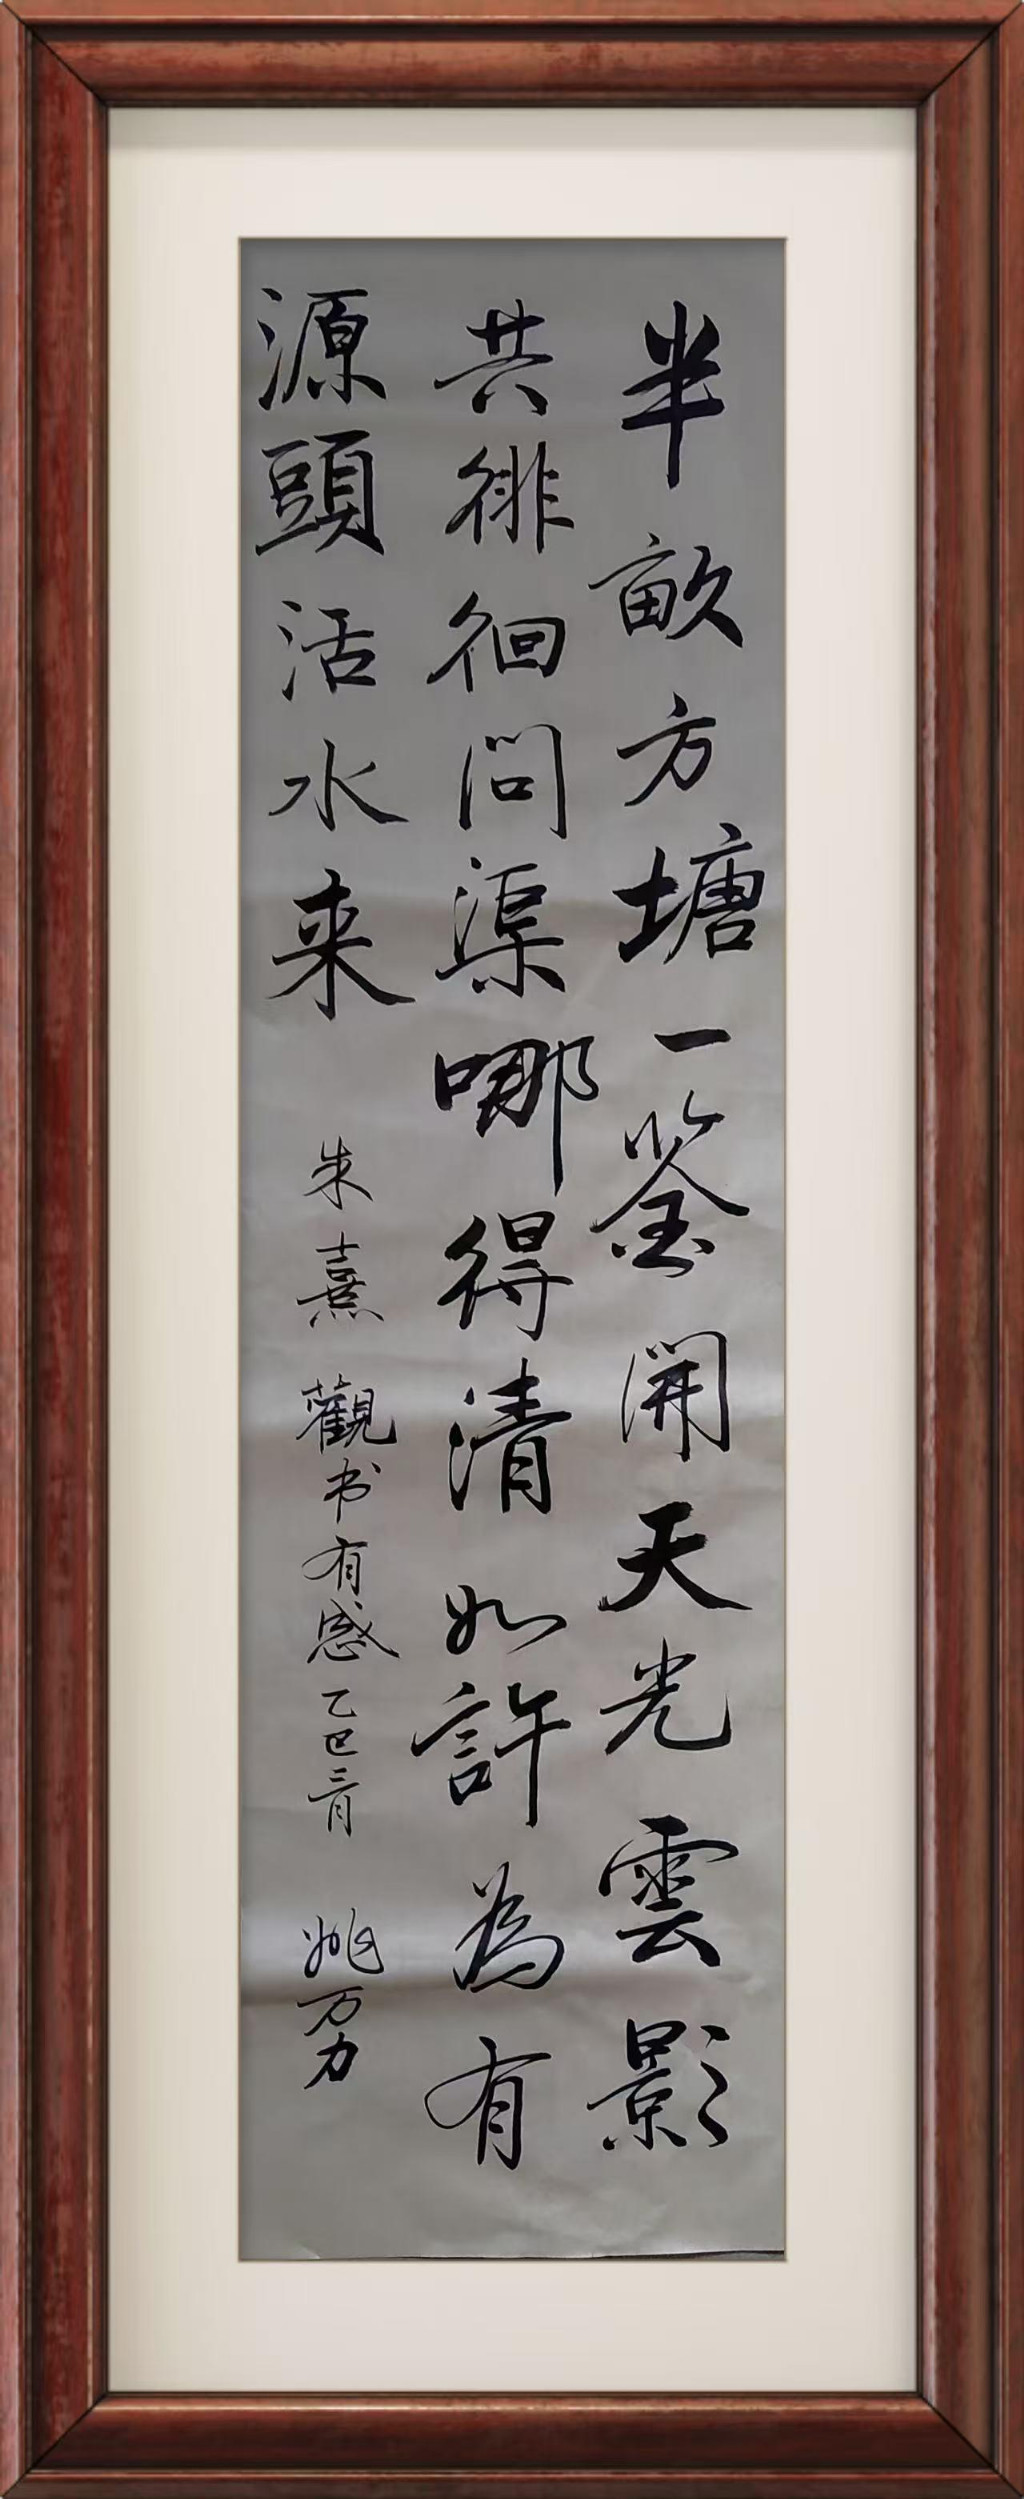 半畝方塘一鉴開天光雲影
共徘徊問渠哪得清如許為有
源頭活水来
朱熹 觀书有感 乙巳三月 姚万力